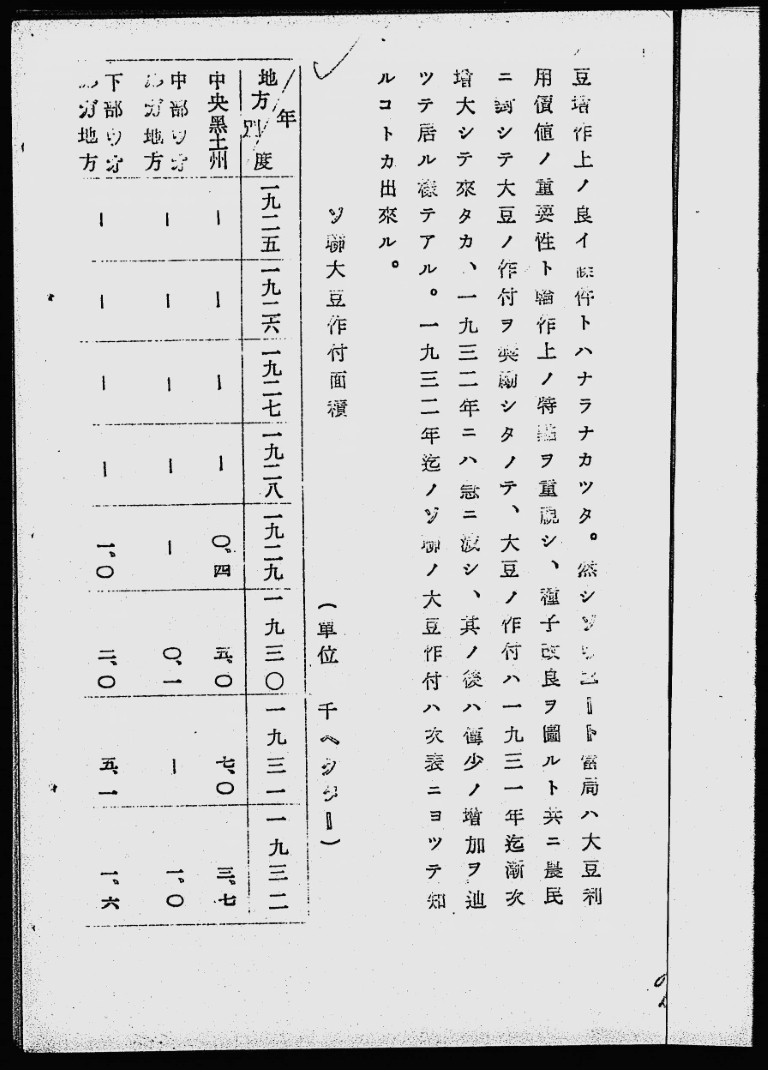 豆增作上ノ良イ條件トハナラナカツタ。然シソウエート當局ハ大豆利
用價値ノ重要性ト輪作上ノ特益ヲ重視シ、種子改良ヲ圖ルト共ニ農民
ニ對シテ大豆ノ作付ヲ奬勵シタノテ、大豆ノ作付ハ一九三一年迄漸次
增大シテ來タカ、一九三二年ニハ急ニ減シ、其ノ後ハ僅少ノ增加ヲ辿
ツテ居ル樣テアル。一九三二年迄ノソ聯ノ大豆作付ハ次表ニヨツテ知
ルコトカ出來ル。
ソ聯大豆作付面積
(單位 千ヘクター)
地方別 年度 一九二五 一九二六 一九二七 一九二八 一九二九 一九三〇 一九三一 一九三二
中央黑土州 ー ー ー ー 〇、四 五、〇 七、〇 三、七
中部ウオルガ地方 ー ー ー ー ー 〇、一 ー 一、〇
下部ウオルガ地方 ー ー ー ー 一、〇 二、〇 五、一 一、六